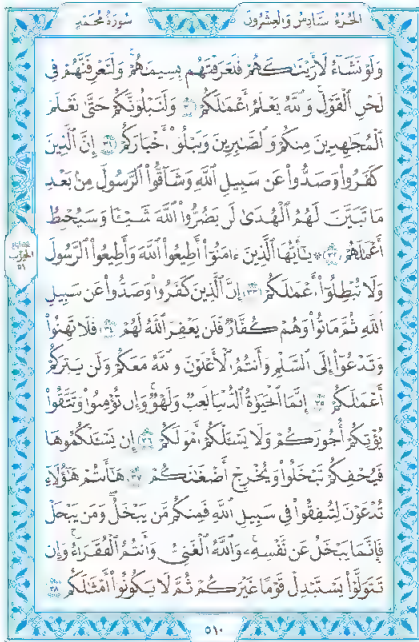 الجزء السادس والعشرون سورة محمد
وَلَوْ نَشَآءُ لَأَرَيْنَٰكَهُمْ فَلَعَرَفْتَهُم بِسِيمَٰهُمْ وَلَتَعْرِفَنَّهُمْ فِى
لَحْنِ ٱلْقَوْلِ وَٱللَّهُ يَعْلَمُ أَعْمَٰلَكُمْ ٣٠ وَلَنَبْلُوَنَّكُمْ حَتَّىٰ نَعْلَمَ
ٱلْمُجَٰهِدِينَ مِنكُمْ وَٱلصَّٰبِرِينَ وَنَبْلُوَا۟ أَخْبَارَكُمْ ٣١ إِنَّ ٱلَّذِينَ
كَفَرُوا۟ وَصَدُّوا۟ عَن سَبِيلِ ٱللَّهِ وَشَآقُّوا۟ ٱلرَّسُولَ مِنۢ بَعْدِ
مَا تَبَيَّنَ لَهُمُ ٱلْهُدَىٰ لَن يَضُرُّوا۟ ٱللَّهَ شَيْـًٔا وَسَيُحْبِطُ
أَعْمَٰلَهُمْ ٣٢ ۞ يَٰٓأَيُّهَا ٱلَّذِينَ ءَامَنُوٓا۟ أَطِيعُوا۟ ٱللَّهَ وَأَطِيعُوا۟ ٱلرَّسُولَ
وَلَا تُبْطِلُوٓا۟ أَعْمَٰلَكُمْ ٣٣ إِنَّ ٱلَّذِينَ كَفَرُوا۟ وَصَدُّوا۟ عَن سَبِيلِ
ٱللَّهِ ثُمَّ مَاتُوا۟ وَهُمْ كُفَّارٌ فَلَن يَغْفِرَ ٱللَّهُ لَهُمْ ٣٤ فَلَا تَهِنُوا۟
وَتَدْعُوٓا۟ إِلَى ٱلسَّلْمِ وَأَنتُمُ ٱلْأَعْلَوْنَ وَٱللَّهُ مَعَكُمْ وَلَن يَتِرَكُمْ
أَعْمَٰلَكُمْ ٣٥ إِنَّمَا ٱلْحَيَوٰةُ ٱلدُّنْيَا لَعِبٌ وَلَهْوٌ وَإِن تُؤْمِنُوا۟ وَتَتَّقُوا۟
يُؤْتِكُمْ أُجُورَكُمْ وَلَا يَسْـَٔلْكُمْ أَمْوَٰلَكُمْ ٣٦ إِن يَسْـَٔلْكُمُوهَا
فَيُحْفِكُمْ تَبْخَلُوا۟ وَيُخْرِجْ أَضْغَٰنَكُمْ ٣٧ هَٰٓأَنتُمْ هَٰٓؤُلَآءِ
تُدْعَوْنَ لِتُنفِقُوا۟ فِى سَبِيلِ ٱللَّهِ فَمِنكُم مَّن يَبْخَلُ وَمَن يَبْخَلْ
فَإِنَّمَا يَبْخَلُ عَن نَّفْسِهِۦ وَٱللَّهُ ٱلْغَنِىُّ وَأَنتُمُ ٱلْفُقَرَآءُ وَإِن
تَتَوَلَّوْا۟ يَسْتَبْدِلْ قَوْمًا غَيْرَكُمْ ثُمَّ لَا يَكُونُوٓا۟ أَمْثَٰلَكُم ٣٨
الحزب
٥١
٥١٠